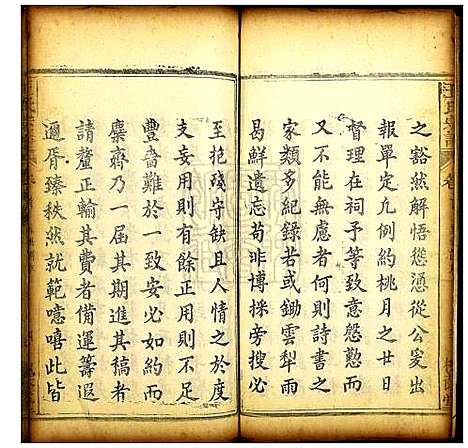 之豁然解悟從憑從公爰出
報單定凡例約桃月之廿日
督理在祠予等致意慇懃而
又不能無慮者何則詩書之
家類多紀錄若或鋤雲犁雨
曷鮮遺忘苟非博採旁搜必
至抱殘守缺且人情之於度
支妄用則有餘正用則不足
豐嗇難於一致安必如約而
稟齋乃一届其期進其稿者
請釐正輸其費者備運籌遐
邇胥臻秩然就範噫嘻此皆